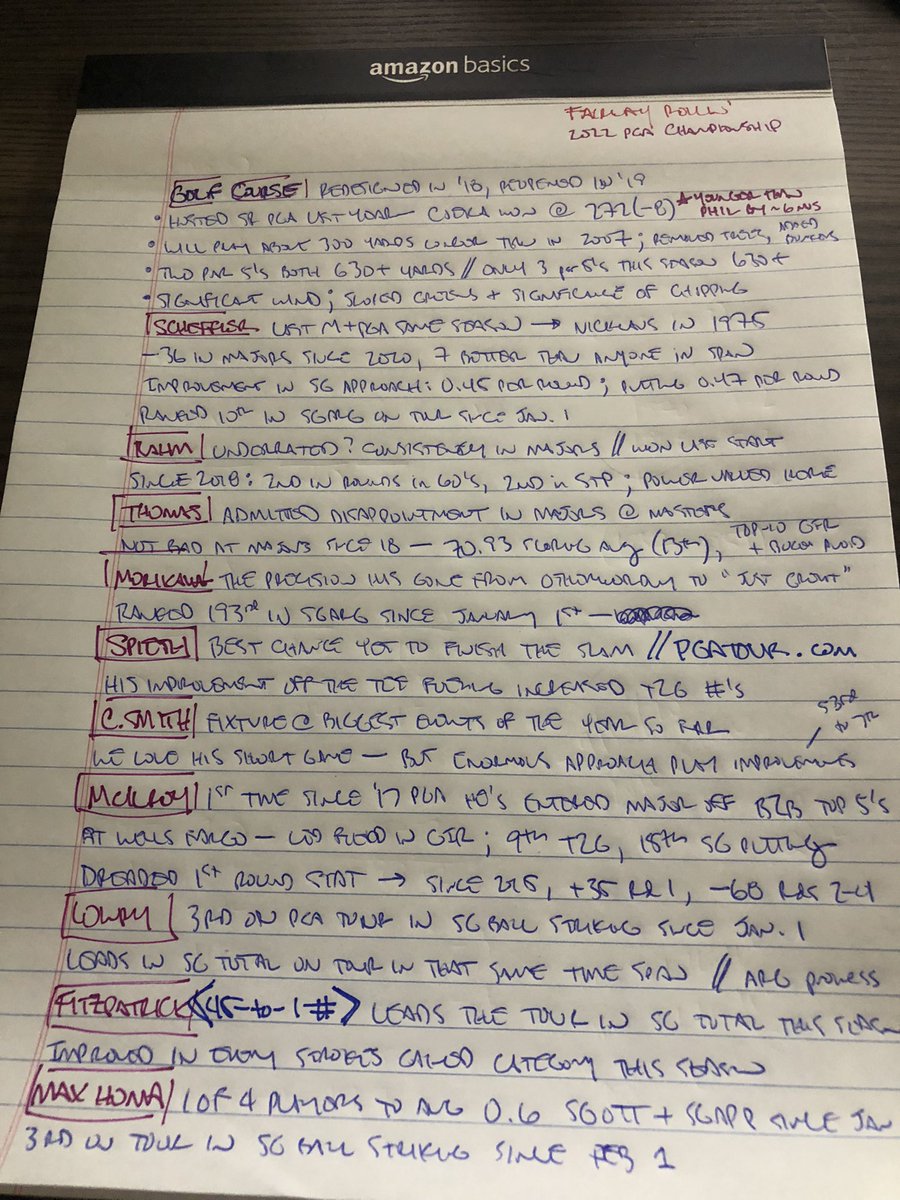 amazon basics
FAIRWAY ROLLIN'
2022 PGA CHAMPIONSHIP
GOLF COURSE | REDESIGNED IN '18, REOPENED IN '19
• HOSTED SR PGA LAST YEAR CEJKA WON @ 272 (-8) * YOUNGER THAN PHIL BY ~6 MOS
• WILL PLAY ABOUT 300 YARDS LONGER THAN IN 2007; REMOVED TREES, ADDED BUNKERS
• TWO PAR 5'S BOTH 630+ YARDS // ONLY 3 par 5's THIS SEASON 630+
• SIGNIFICANT WIND; SLOPED GREENS + SIGNIFICANCE OF CHIPPING
SCHEFFLER LAST M+PGA SAME SEASON → NICKLAUS IN 1975
-36 IN MAJORS SINCE 2020, 7 BETTER THAN ANYONE IN SPAN
IMPROVEMENT IN SG APPROACH: 0.45 PER ROUND; PUTTING 0.47 PER ROUND
RANKED 10th IN SGARG ON TOUR SINCE JAN. 1
RAHM | UNDERRATED? CONSISTENCY IN MAJORS // WON LAST START
SINCE 2018: 2ND IN ROUNDS IN 60'S, 2ND in STP; POWER VALUED HERE
THOMAS | ADMITTED DISAPPOINTMENT IN MAJORS @ MASTERS
NOT BAD AT MAJORS SINCE 18 — 70.93 SCORING AVG (13th), TOP-10 GIR + BOGEY AVOID
MORIKAWA THE PRECISION HAS GONE FROM OTHERWORLDLY TO "JUST GREAT"
RANKED 193rd IN SGARG SINCE JANUARY 1st —
SPIETH | BEST CHANCE YET TO FINISH THE SLAM // PGATOUR.COM
HIS IMPROVEMENT OFF THE TEE FUELING INCREASED T2G #'S
C. SMITH | FIXTURE @ BIGGEST EVENTS OF THE YEAR SO FAR
WE LOVE HIS SHORT GAME — BUT ENORMOUS APPROACH PLAY IMPROVEMENTS / 53rd to 7th
MCILROY | 1ST TIME SINCE '17 PGA HE'S ENTERED MAJOR OFF B2B TOP 5'S
AT WELLS FARGO — LED FIELD IN GIR; 9th T2G, 18th SG PUTTING
DREADED 1ST ROUND STAT → SINCE 2015, +35 RD 1, -60 RDS 2-4
LOWRY | 3RD ON PGA TOUR IN SG BALL STRIKING SINCE JAN. 1
LEADS IN SG TOTAL ON TOUR IN THAT SAME TIME SPAN // ARG prowess
FITZPATRICK <45-to-1 #> LEADS THE TOUR IN SG TOTAL THIS SEASON
IMPROVED IN EVERY STROKES GAINED CATEGORY THIS SEASON
MAX HOMA | 1 OF 4 PLAYERS TO AVG 0.6 SGOTT + SGAPP SINCE JAN
3RD ON TOUR IN SG BALL STRIKING SINCE FEB 1